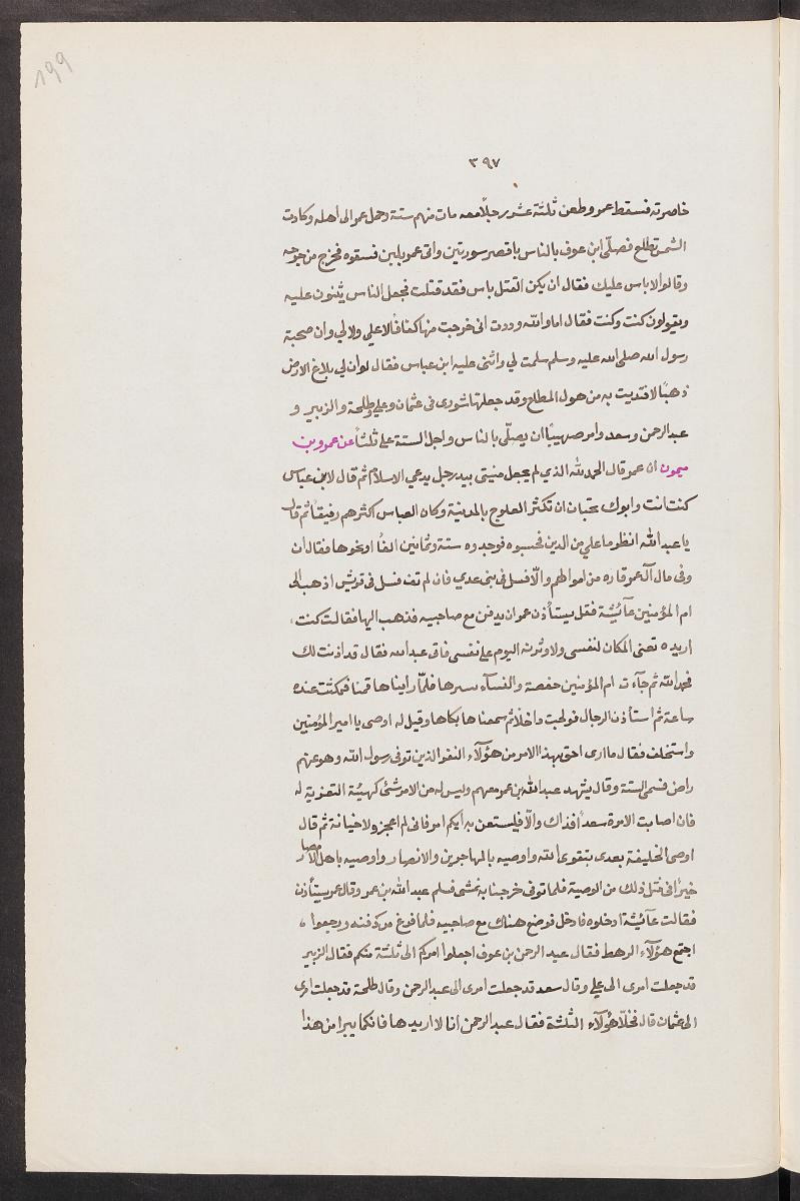 199
٣٩٧
خاصرته فسقط عمر وطعن ثلثة عشر رجلاً معه مات منهم ستة وحمل عمر الى اهله وكادت
الشمس تطلع فصلّى ابن عوف بالناس باقصر سورتين واتى عمر بلبن فسقوه فخرج من جرحه
وقالوا لا باس عليك فقال ان يكن القتل باس فقد قتلت فجعل الناس يثنون عليه
ويقولون كنت وكنت فقال اما والله وددت انى خرجت منها كفافاً لا علي ولا لي وان صحبة
رسول الله صلى الله عليه وسلم سلمت لي واثنى عليه ابن عباس فقال لوان لي بلاغ الارض
ذهبًا لافتديت به من هول المطلع وقد جعلتها شورى فى عثمان وعلي وطلحة والزبير و
عبد الرحمن وسعد وامر صهيبًا ان يصلّى بالناس واجل الستة على ثلثاً عن عمرو بن
ميمون ان عمر قال الحمد لله الذي لم يجعل منيتى بيد رجل يدعي الاسلام ثم قال لابن عباس
كنت انت وابوك تحبان ان تكثر العلوج بالمدينة وكان العباس اكثرهم رفيقاً ثم قال
يا عبد الله انظر ما علي من الدين فحسبوه فوجدوه ستة وثمانين الفًا اونحوها فقال ان
وفى مال آل عمر فاده من اموالهم والّا فسل فى بنى عدي فان لم تف فسل فى قريش اذهب الى
ام المؤمنين عآئشة فقل يستأذن عمر ان يدفن مع صاحبيه فذهب اليها فقالت كنت
اريده تعنى المكان لنفسى ولاوثرنه اليوم على نفسى فاتى عبد الله فقال قد اذنت لك
فحمد الله ثم جآءت ام المؤمنين حفصة والنسآء يسرها فلمّا رايناها قمنا فمكثت عنده
ساعة ثم استأذن الرجال فولجت داخلا ثم سمعنا بكاها وقيل له اوصى يا امير المؤمنين
واستخلف فقال ما ارى احق بهذا الامر من هؤلآء النفر الذين توفى رسول الله وهو عنهم
راض فسمى الستة وقال يشهد عبد الله بن عمر معهم وليس له من الامر شئ كهيئة التعزية له
فان اصابت الامرة سعداً فذاك والّا فليستعن به ايكم امر فانى لم اعزله من عجز ولا خيانة ثم قال
اوصى الخليفة بعدى بتقوى الله واوصيه بالمهاجرين والانصار واوصيه باهل الامصار
خيرًا فى مثل ذلك من الوصية فلما توفى خرجنا به نمشى فسلم عبد الله بن عمر وقال عمر يستأذن
فقالت عآئشة ادخلوه فادخل فوضع هناك مع صاحبيه فلما فرغ من دفنه ورجعوا
اجتمع هؤلآء الرهط فقال عبد الرحمن بن عوف اجعلوا امركم الى ثلثة منكم فقال الزبير
قد جعلت امرى الى علي وقال سعد قد جعلت امرى الى عبد الرحمن وقال طلحة قد جعلت امرى
الى عثمان قال فخلا هؤلآء الثلثة فقال عبد الرحمن انا لا اريدها فانكما يبرا من هذا